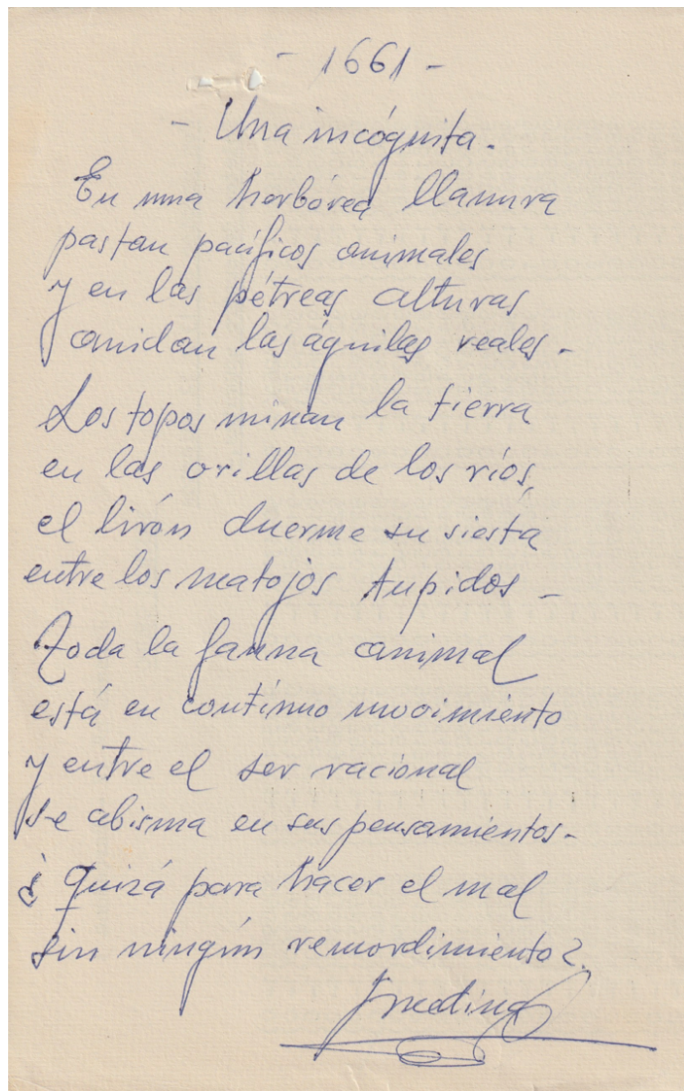 - 1661 -
- Una incógnita.
En una herbórea llanura
pastan pacíficos animales
y en las pétreas alturas
anidan las águilas reales -
Los topos minan la tierra
en las orillas de los ríos,
el lirón duerme su siesta
entre los matojos tupidos -
Toda la fauna animal
está en contínuo movimiento
y entre el ser racional
se abisma en sus pensamientos -
¿Quizá para hacer el mal
sin ningún remordimiento?